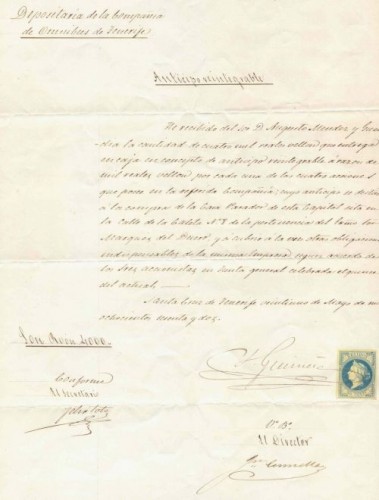 Depositaria de la Compañia
de Omnibus de Tenerife
Anticipo reintegrable
He recibido del Sor D. Augusto Mendez y
la cantidad de cuatro mil reales vellon que entrega
en caja en concepto de anticipo reintegrable á razon de
mil reales vellon por cada una de las cuatro acciones
que posee en la referida Compañia; cuyo anticipo se
á la compra de la Casa Parador de esta Capital sita en
la Calle de la Caleta Nº 8 de la pertenencia del Exmo Sor
Marques del Duero, y á cubrir á la vez otras obligaciones
indispensables de la misma Empresa, segun acuerdo de
los Sres accionistas en Junta general celebrada el quince
del actual.
Santa Cruz de Tenerife veintiuno de Mayo de mil
ochocientos sesenta y dos.
Son Rvon 4000.
Conforme
El Secretario
Vº Bº
El Director